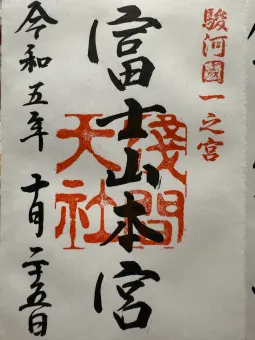 駿河國一之宮
富士山本宮
淺間
天社
令和五年 十月二十五日